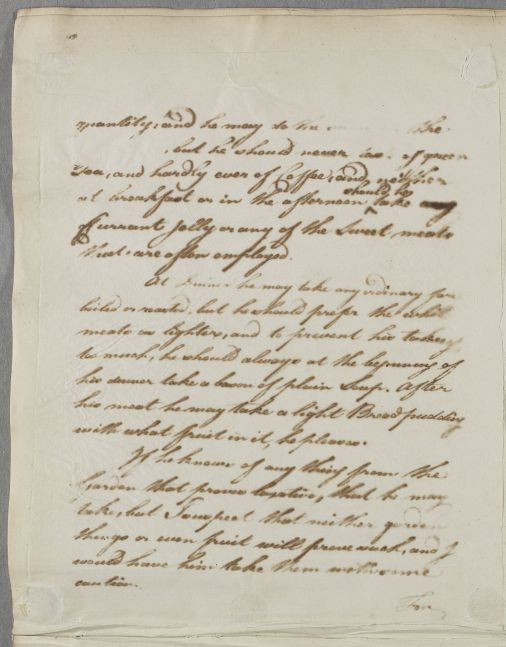 quantity, and he may do the the
but he should never take of green
Tea, and hardly ever of Coffee, and neither
at breakfast or in the afternoon should he take any
Currant Jelly or any of the Sweet meats
that are often employed.
At Dinner he may take any ordinary fare
boiled or roasted, but he should prefer the white
meats as lighter, and to prevent his taking
too much, he should always at the beginning of
his dinner take a bason of plain Soup. After
his meat he may take a light Bread pudding
with what fruit in it, he pleases.
If he knows of any thing from the
Garden that proves laxative, that he may
take, but I suspect that neither garden
things or even fruit will prove such, and I
would have him take them with some
caution.